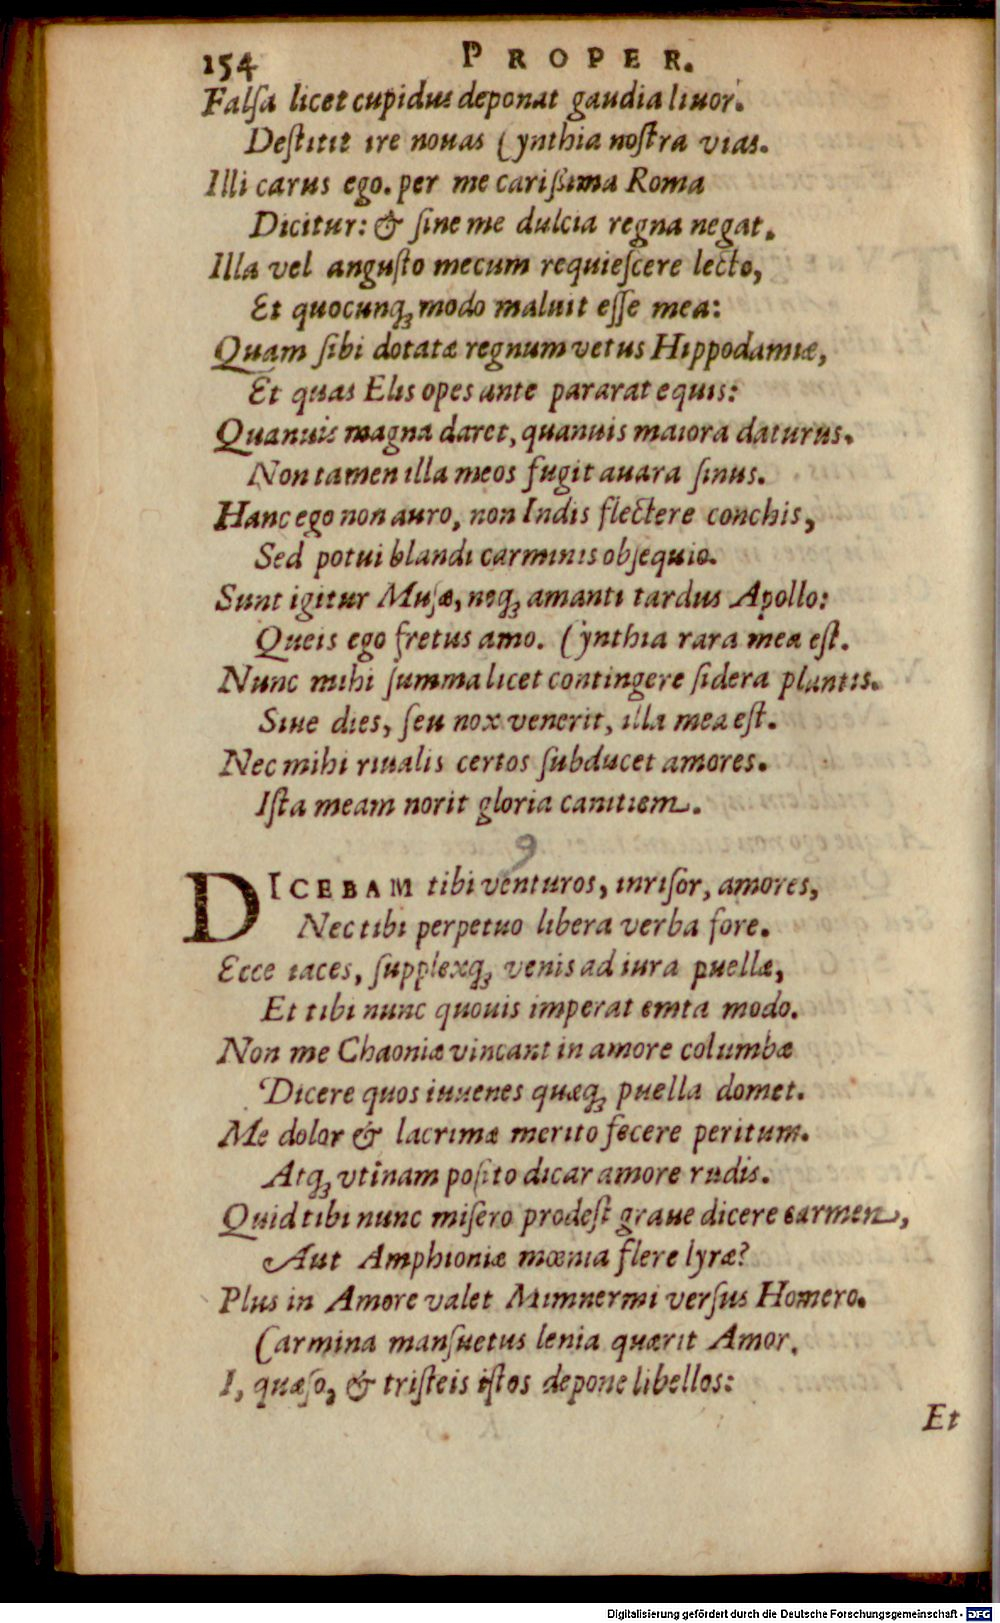 154 PROPER.
Falſa licet cupidus deponat gaudia liuor.
Deſtitit ire nouas Cynthia noſtra vias.
Illi carus ego. per me cariſſima Roma
Dicitur: & ſine me dulcia regna negat.
Illa vel anguſto mecum requieſcere lecto,
Et quocunq; modo maluit eſſe mea:
Quam ſibi dotatæ regnum vetus Hippodamiæ,
Et quas Elis opes ante pararat equis:
Quanuis magna daret, quanuis maiora daturus.
Non tamen illa meos fugit auara ſinus.
Hanc ego non auro, non Indis flectere conchis,
Sed potui blandi carminis obſequio.
Sunt igitur Muſæ, neq; amanti tardus Apollo:
Queis ego fretus amo. Cynthia rara mea eſt.
Nunc mihi ſumma licet contingere ſidera plantis.
Siue dies, ſeu nox venerit, illa mea eſt.
Nec mihi riualis certos ſubducet amores.
Iſta meam norit gloria canitiem.
9
DICEBAM tibi venturos, inriſor, amores,
Nec tibi perpetuo libera verba fore.
Ecce iaces, ſupplexq; venis ad iura puellæ,
Et tibi nunc quouis imperat emta modo.
Non me Chaoniæ vincant in amore columbæ
Dicere quos iuuenes quæq; puella domet.
Me dolor & lacrimæ merito fecere peritum.
Atq; vtinam poſito dicar amore rudis.
Quid tibi nunc miſero prodeſt graue dicere carmen,
Aut Amphioniæ mœnia flere lyræ?
Plus in Amore valet Mimnermi verſus Homero.
Carmina manſuetus lenia quærit Amor.
I, quæſo, & triſteis iſtos depone libellos:
Et
Digitalisierung gefördert durch die Deutsche Forschungsgemeinschaft - DFG